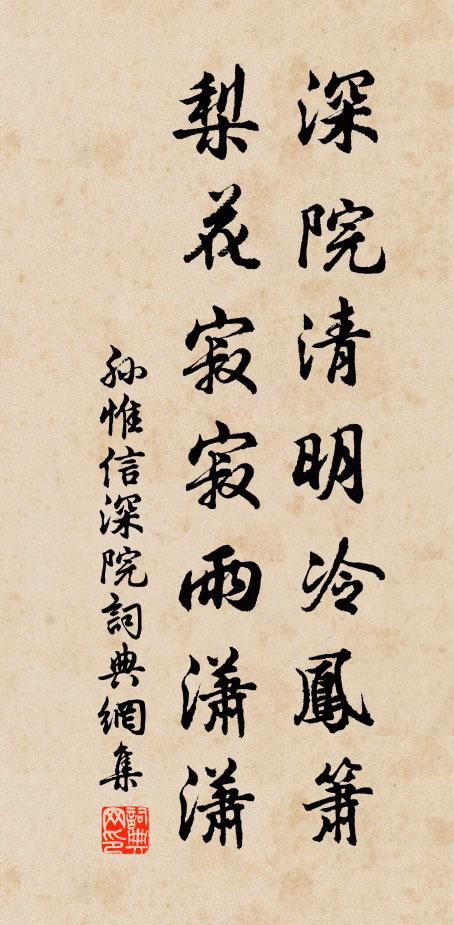 深院清明冷鳳簫
梨花寂寂雨瀟瀟
孫惟信深院詞典網集
詞典网印